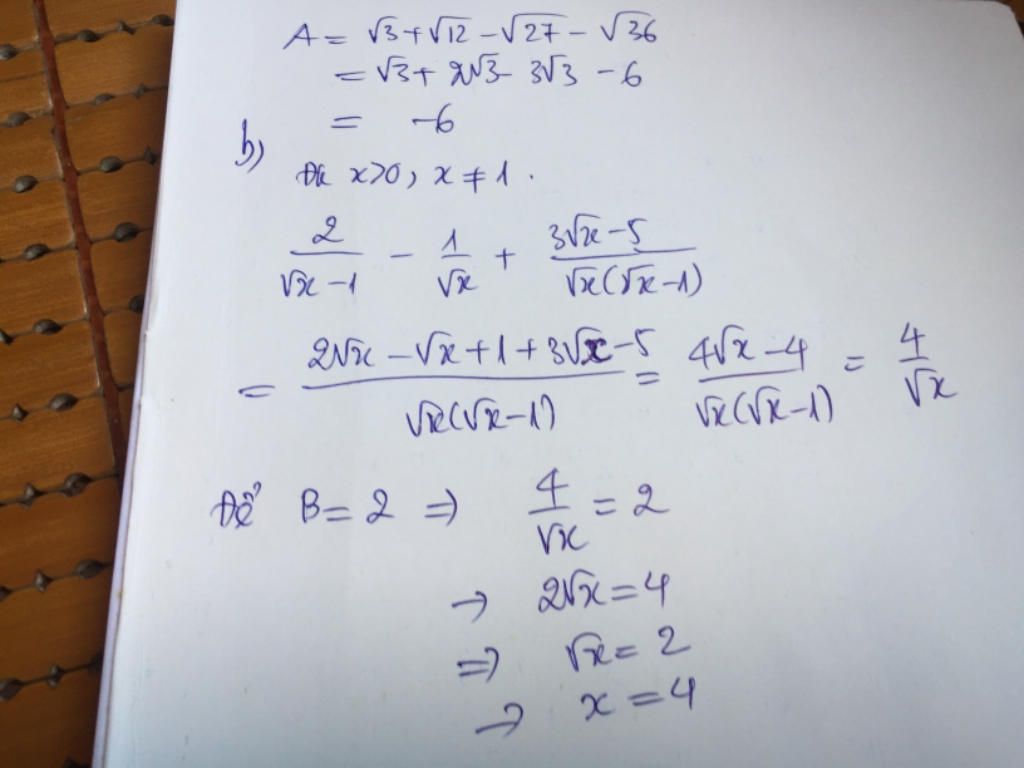 A = √3 + √12 - √27 - √36
= √3 + 2√3 - 3√3 - 6
= -6
b)
Đk x>0, x ≠ 1.
2/(√x - 1) - 1/√x + (3√x - 5)/(√x(√x - 1))
= (2√x - √x + 1 + 3√x - 5)/(√x(√x - 1)) = (4√x - 4)/(√x(√x - 1)) = 4/√x
Để B = 2 => 4/√x = 2
→ 2√x = 4
=> √x = 2
→ x = 4